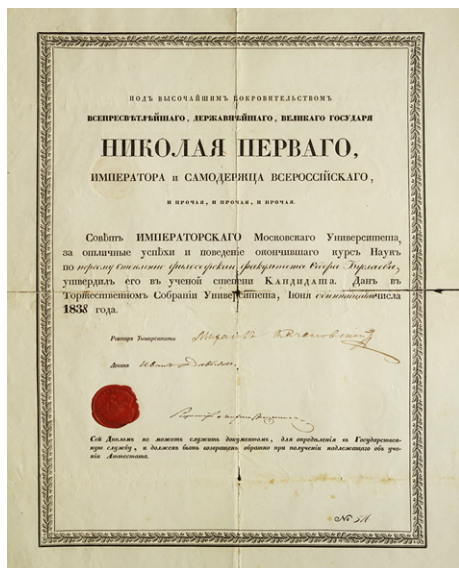 ПОДЪ ВЫСОЧАЙШИМЪ ПОКРОВИТЕЛЬСТВОМЪ
ВСЕПРЕСВѢТЛѢЙШАГО, ДЕРЖАВНѢЙШАГО, ВЕЛИКАГО ГОСУДАРЯ
НИКОЛАЯ ПЕРВАГО,
ИМПЕРАТОРА и САМОДЕРЖЦА ВСЕРОССІЙСКАГО,
И ПРОЧАЯ, И ПРОЧАЯ, И ПРОЧАЯ.
Совѣтъ ИМПЕРАТОРСКАГО Московскаго Университета,
за отличные успѣхи и поведеніе окончившаго курсъ Наукъ
по первому отделенію философскаго факультета Ѳедора Буслаева,
утвердилъ его въ ученой степени Кандидата. Данъ въ
Торжественномъ Собраніи Университета, Іюня числа
1838 года.
Ректоръ Университета Михаилъ Каченовскій
Деканъ Иванъ Давыдовъ
Сей Дипломъ не можетъ служить документомъ, для опредѣленія въ Государствен-
ную службу, и долженъ быть возвращенъ обратно при полученіи надлежащаго объ уче-
ніи Аттестата.
№